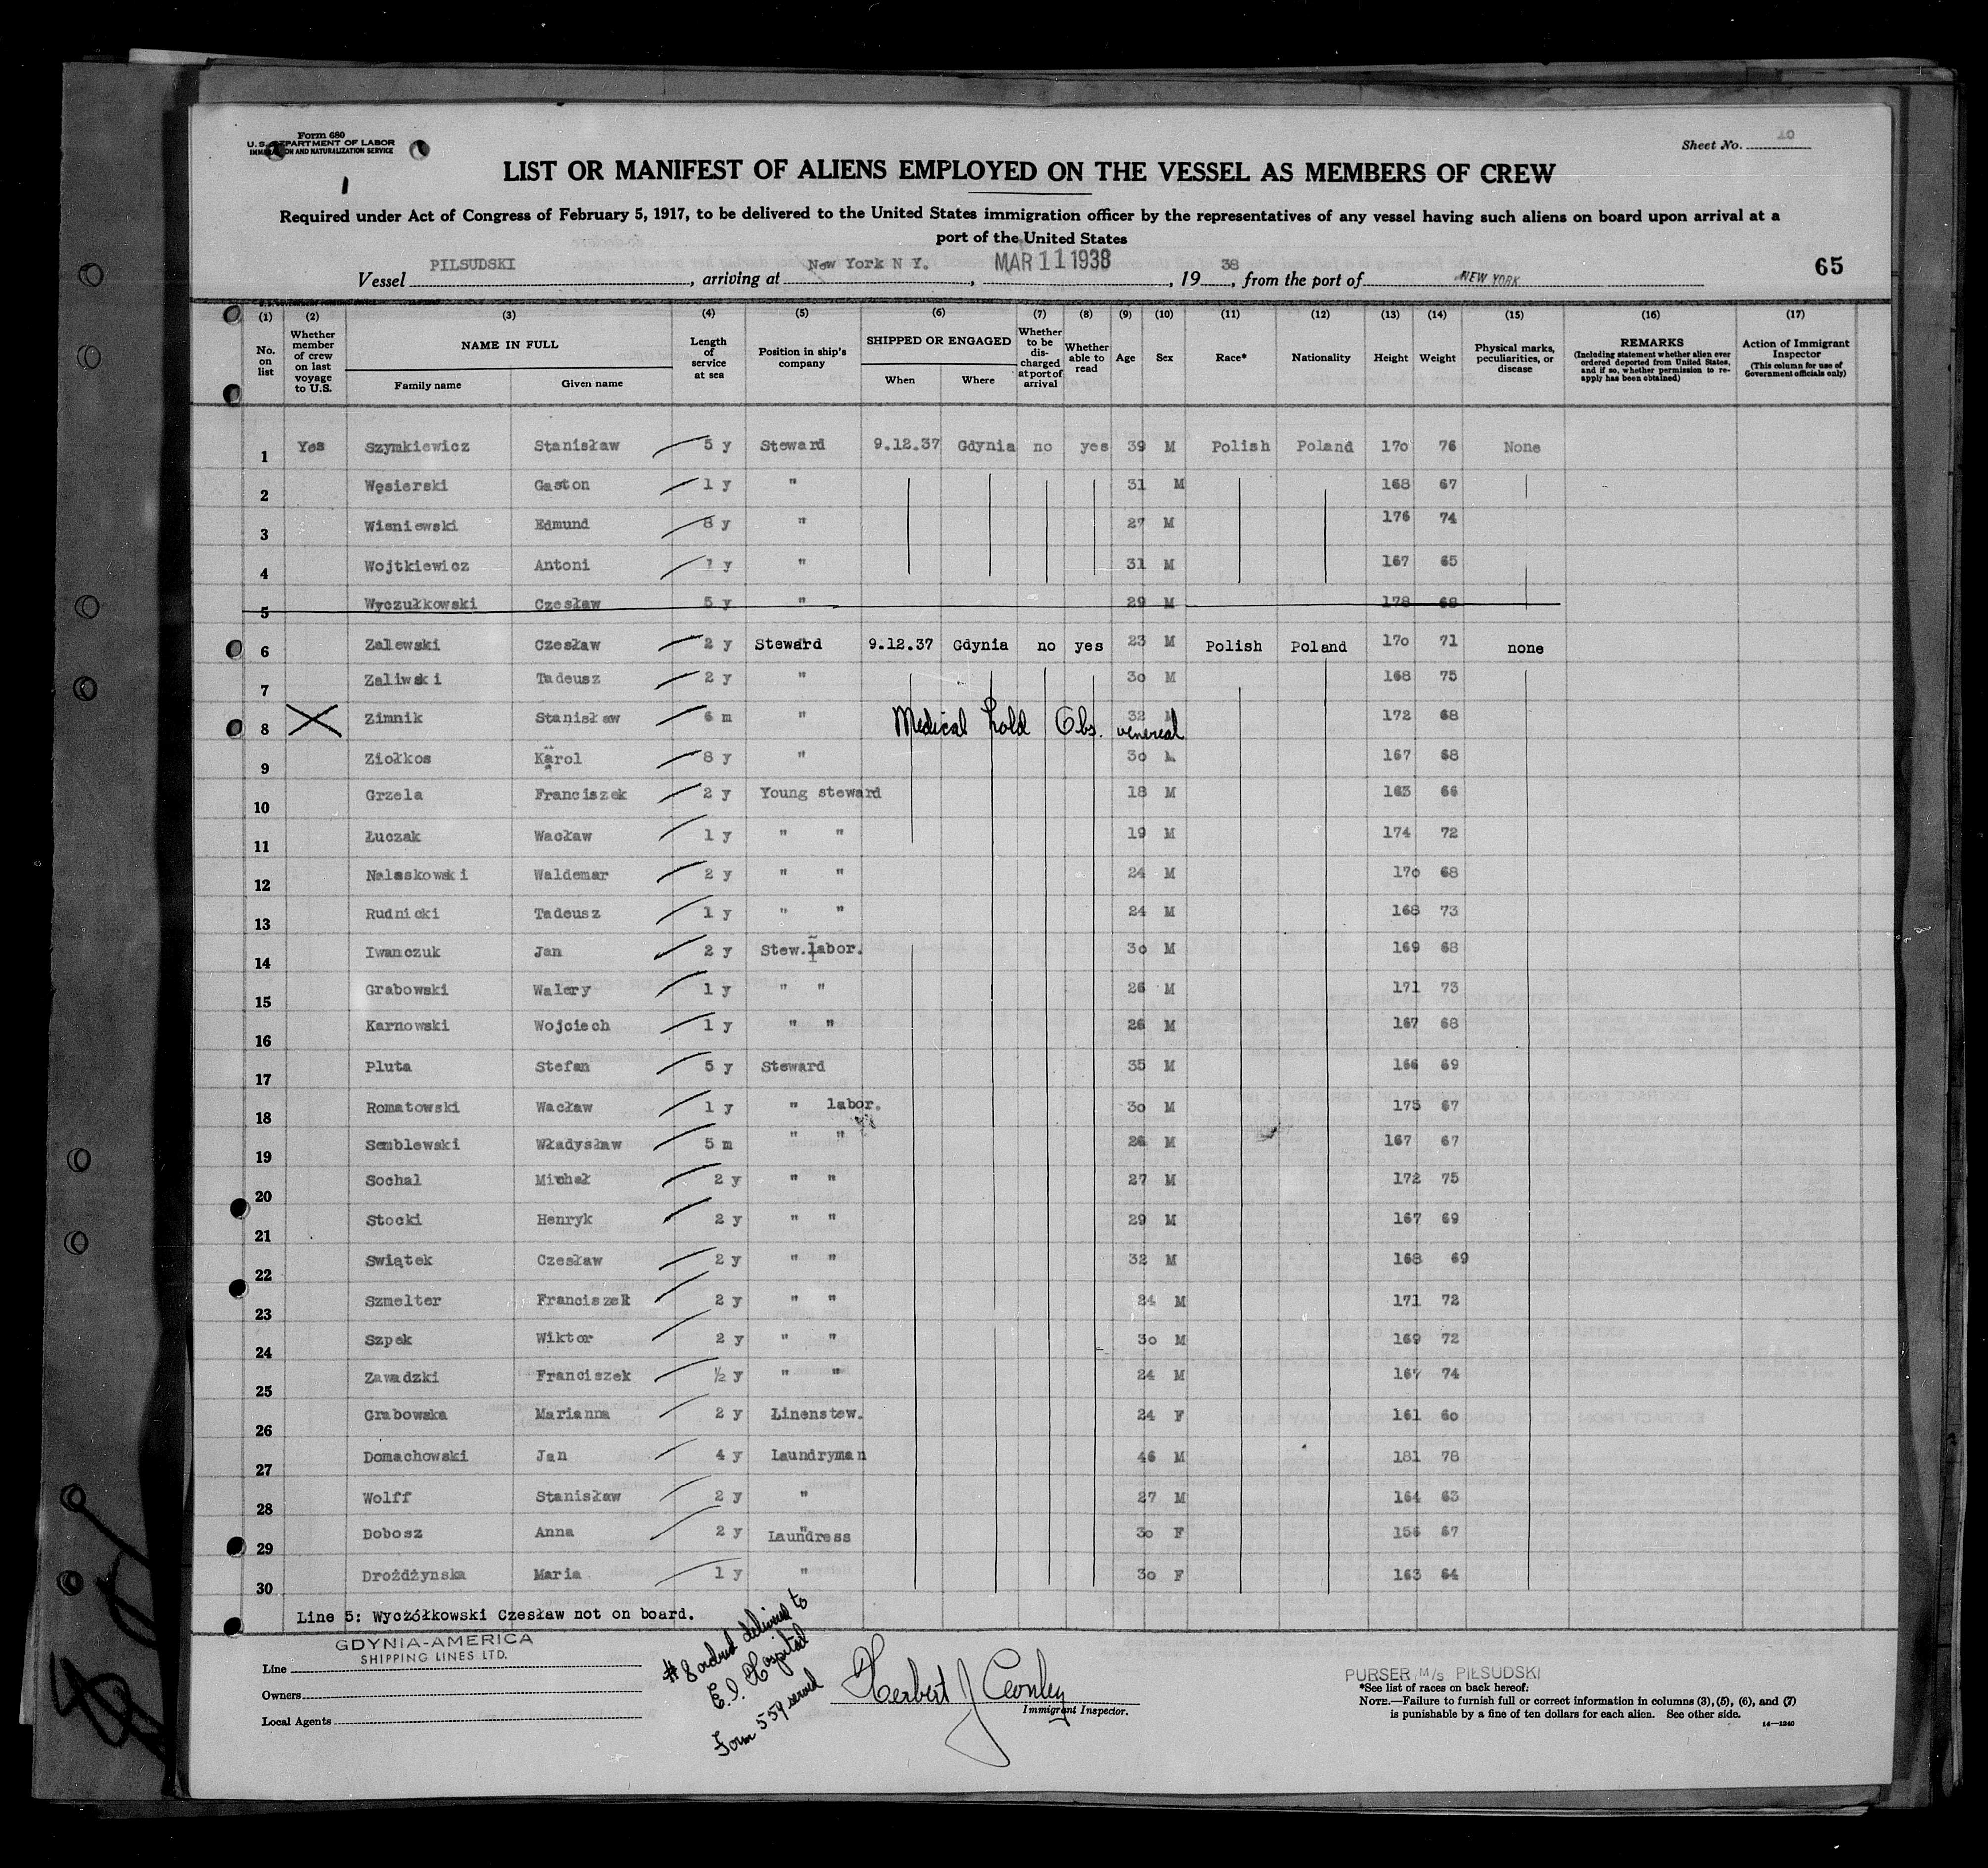 Form 680
U. S. DEPARTMENT OF LABOR
IMMIGRATION AND NATURALIZATION SERVICE
Sheet No. 10
LIST OR MANIFEST OF ALIENS EMPLOYED ON THE VESSEL AS MEMBERS OF CREW
Required under Act of Congress of February 5, 1917, to be delivered to the United States immigration officer by the representatives of any vessel having such aliens on board upon arrival at a
port of the United States
Vessel PILSUDSKI, arriving at New York N Y., MAR 11 1938, 19 38, from the port of NEW YORK
65
(1) (2) (3) (4) (5) (6) (7) (8) (9) (10) (11) (12) (13) (14) (15) (16) (17)
No. on list
Whether member of crew on last voyage to U.S.
NAME IN FULL
Family name Given name
Length of service at sea
Position in ship's company
SHIPPED OR ENGAGED
When Where
Whether to be discharged at port of arrival
Whether able to read
Age
Sex
Race*
Nationality
Height
Weight
Physical marks, peculiarities, or disease
REMARKS
(Including statement whether alien ever ordered deported from United States, and if so, whether permission to reapply has been obtained)
Action of Immigrant Inspector
(This column for use of Government officials only)
1 Yes Szymkiewicz Stanisław 5 y Steward 9.12.37 Gdynia no yes 39 M Polish Poland 170 76 None
2 Węsierski Gaston 1 y " 31 M 168 67
3 Wisniewski Edmund 8 y " 27 M 176 74
4 Wojtkiewicz Antoni 1 y " 31 M 167 65
5 Wyczułkowski Czesław 5 y " 29 M 178 68
6 Zalewski Czesław 2 y Steward 9.12.37 Gdynia no yes 23 M Polish Poland 170 71 none
7 Zaliwski Tadeusz 2 y " 30 M 168 75
8 Zimnik Stanisław 6 m " Medical hold Obs. venereal 32 M 172 68
9 Ziołkos Karol 8 y " 30 M 167 68
10 Grzela Franciszek 2 y Young steward 18 M 163 66
11 Łuczak Wacław 1 y " " 19 M 174 72
12 Nalaskowski Waldemar 2 y " " 24 M 170 68
13 Rudnicki Tadeusz 1 y " " 24 M 168 73
14 Iwanczuk Jan 2 y Stew.labor. 30 M 169 68
15 Grabowski Walery 1 y " " 26 M 171 73
16 Karnowski Wojciech 1 y " " 26 M 167 68
17 Pluta Stefan 5 y Steward 35 M 166 69
18 Romatowski Wacław 1 y " labor. 30 M 175 67
19 Semblewski Władysław 5 m " " 26 M 167 67
20 Sochal Michał 2 y " " 27 M 172 75
21 Stocki Henryk 2 y " " 29 M 167 69
22 Swiątek Czesław 2 y " " 32 M 168 69
23 Szmelter Franciszek 2 y " " 24 M 171 72
24 Szpek Wiktor 2 y " " 30 M 169 72
25 Zawadzki Franciszek ½ y " " 24 M 167 74
26 Grabowska Marianna 2 y Linenstew. 24 F 161 60
27 Domachowski Jan 4 y Laundryman 46 M 181 78
28 Wolff Stanisław 2 y " 27 M 164 63
29 Dobosz Anna 2 y Laundress 30 F 156 67
30 Drożdżynska Maria 1 y " 30 F 163 64
Line 5: Wyczółkowski Czesław not on board.
Line GDYNIA-AMERICA
SHIPPING LINES LTD.
Owners
Local Agents
# 8 delivered to
E. I. Hospital
Form 559 served
Herbert J Conley
Immigrant Inspector.
PURSER M/s PIŁSUDSKI
*See list of races on back hereof.
NOTE.—Failure to furnish full or correct information in columns (3), (5), (6), and (7)
is punishable by a fine of ten dollars for each alien. See other side.
14—1240